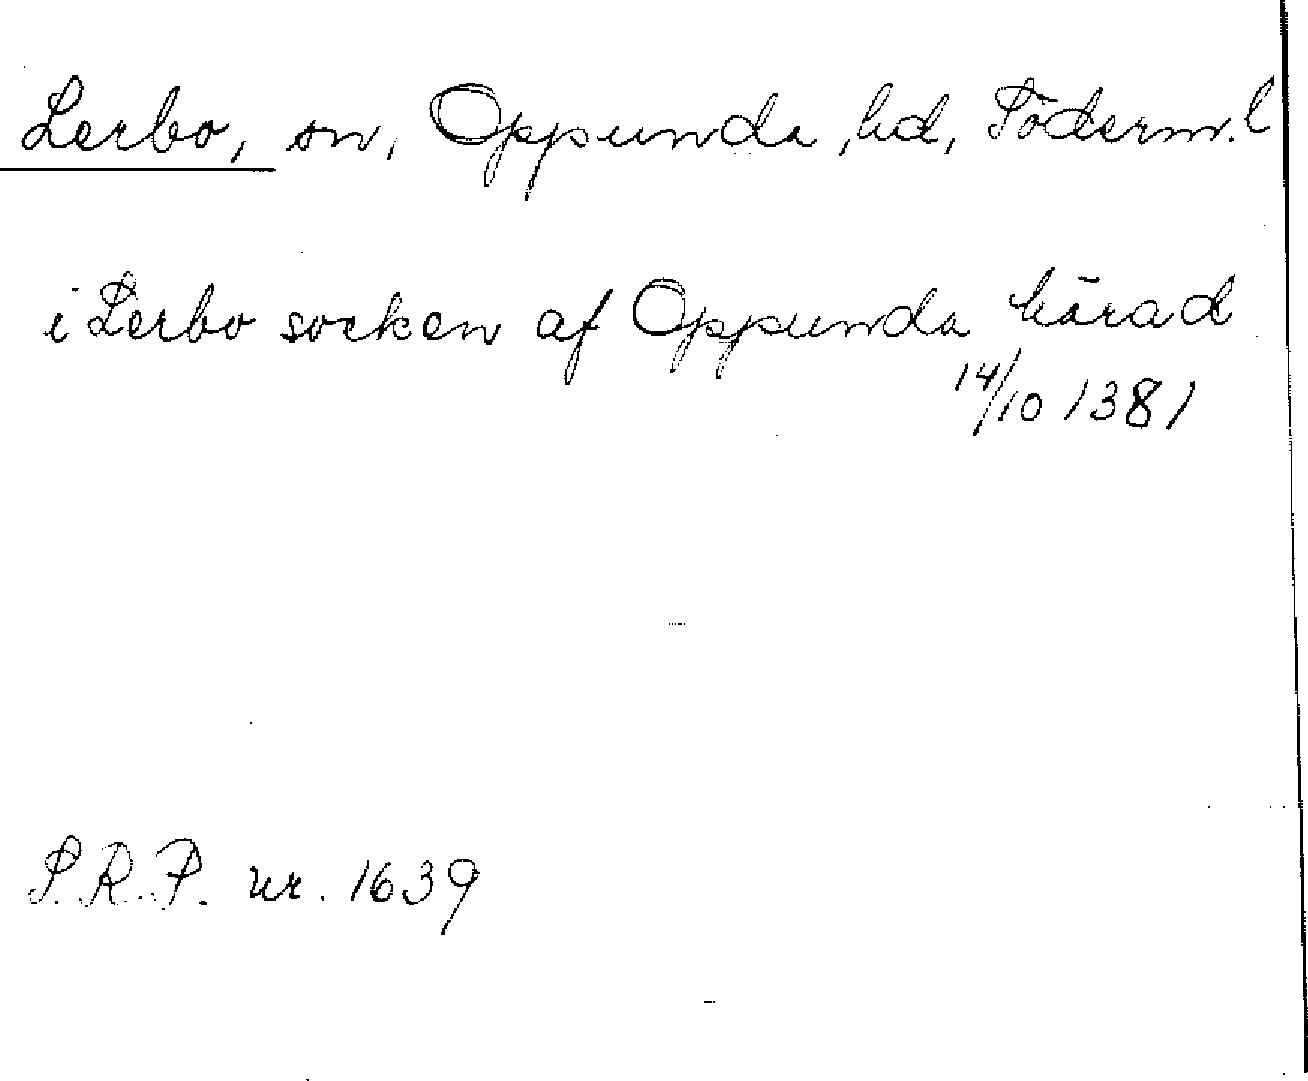 Lerbo, sn, Oppunda hd, Söderm. l
i Lerbo socken af Oppunda härad
14/10 1381
S.R.P. nr. 1639